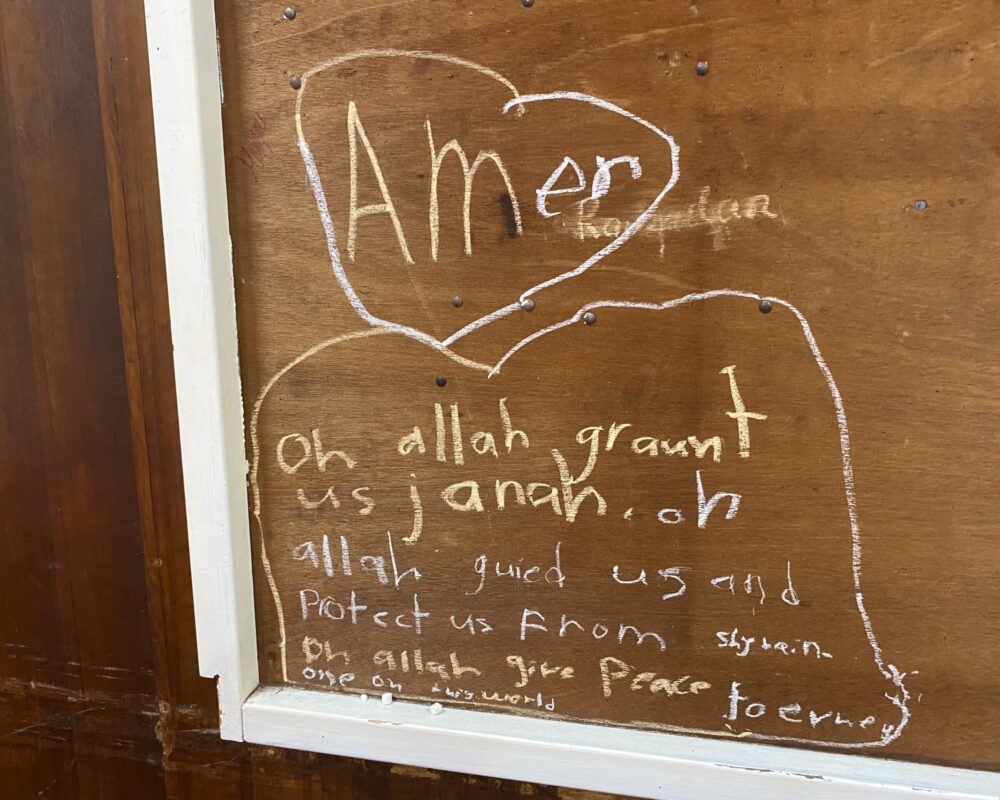 AMer
Oh allah graunt
us janah. oh
allah guied us and
protect us from shytain.
oh allah give peace to erve
one on this world